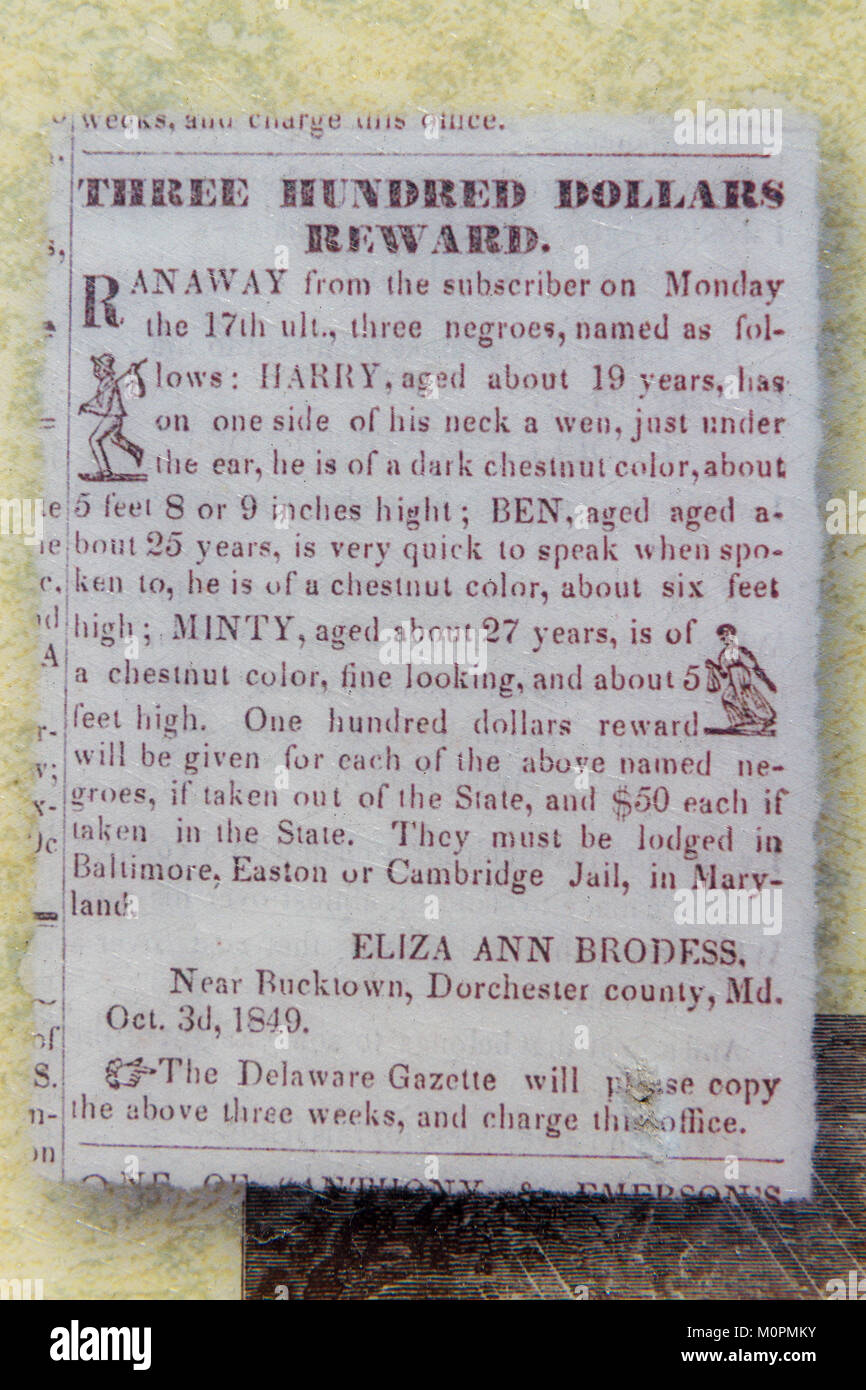 weeks, and charge this office.
THREE HUNDRED DOLLARS
REWARD.
RANAWAY from the subscriber on Monday
the 17th ult., three negroes, named as fol-
lows: HARRY, aged about 19 years, has
on one side of his neck a wen, just under
the ear, he is of a dark chestnut color, about
5 feet 8 or 9 inches hight; BEN, aged aged a-
bout 25 years, is very quick to speak when spo-
ken to, he is of a chestnut color, about six feet
high; MINTY, aged about 27 years, is of
a chestnut color, fine looking, and about 5
feet high. One hundred dollars reward
will be given for each of the above named ne-
groes, if taken out of the State, and $50 each if
taken in the State. They must be lodged in
Baltimore, Easton or Cambridge Jail, in Mary-
land.
ELIZA ANN BRODESS,
Near Bucktown, Dorchester county, Md.
Oct. 3d, 1849.
☞The Delaware Gazette will please copy
the above three weeks, and charge this office.
ONE OF "ANTHONY & EMERSON'S
alamy
alamy stock photo
M0PMKY
www.alamy.com